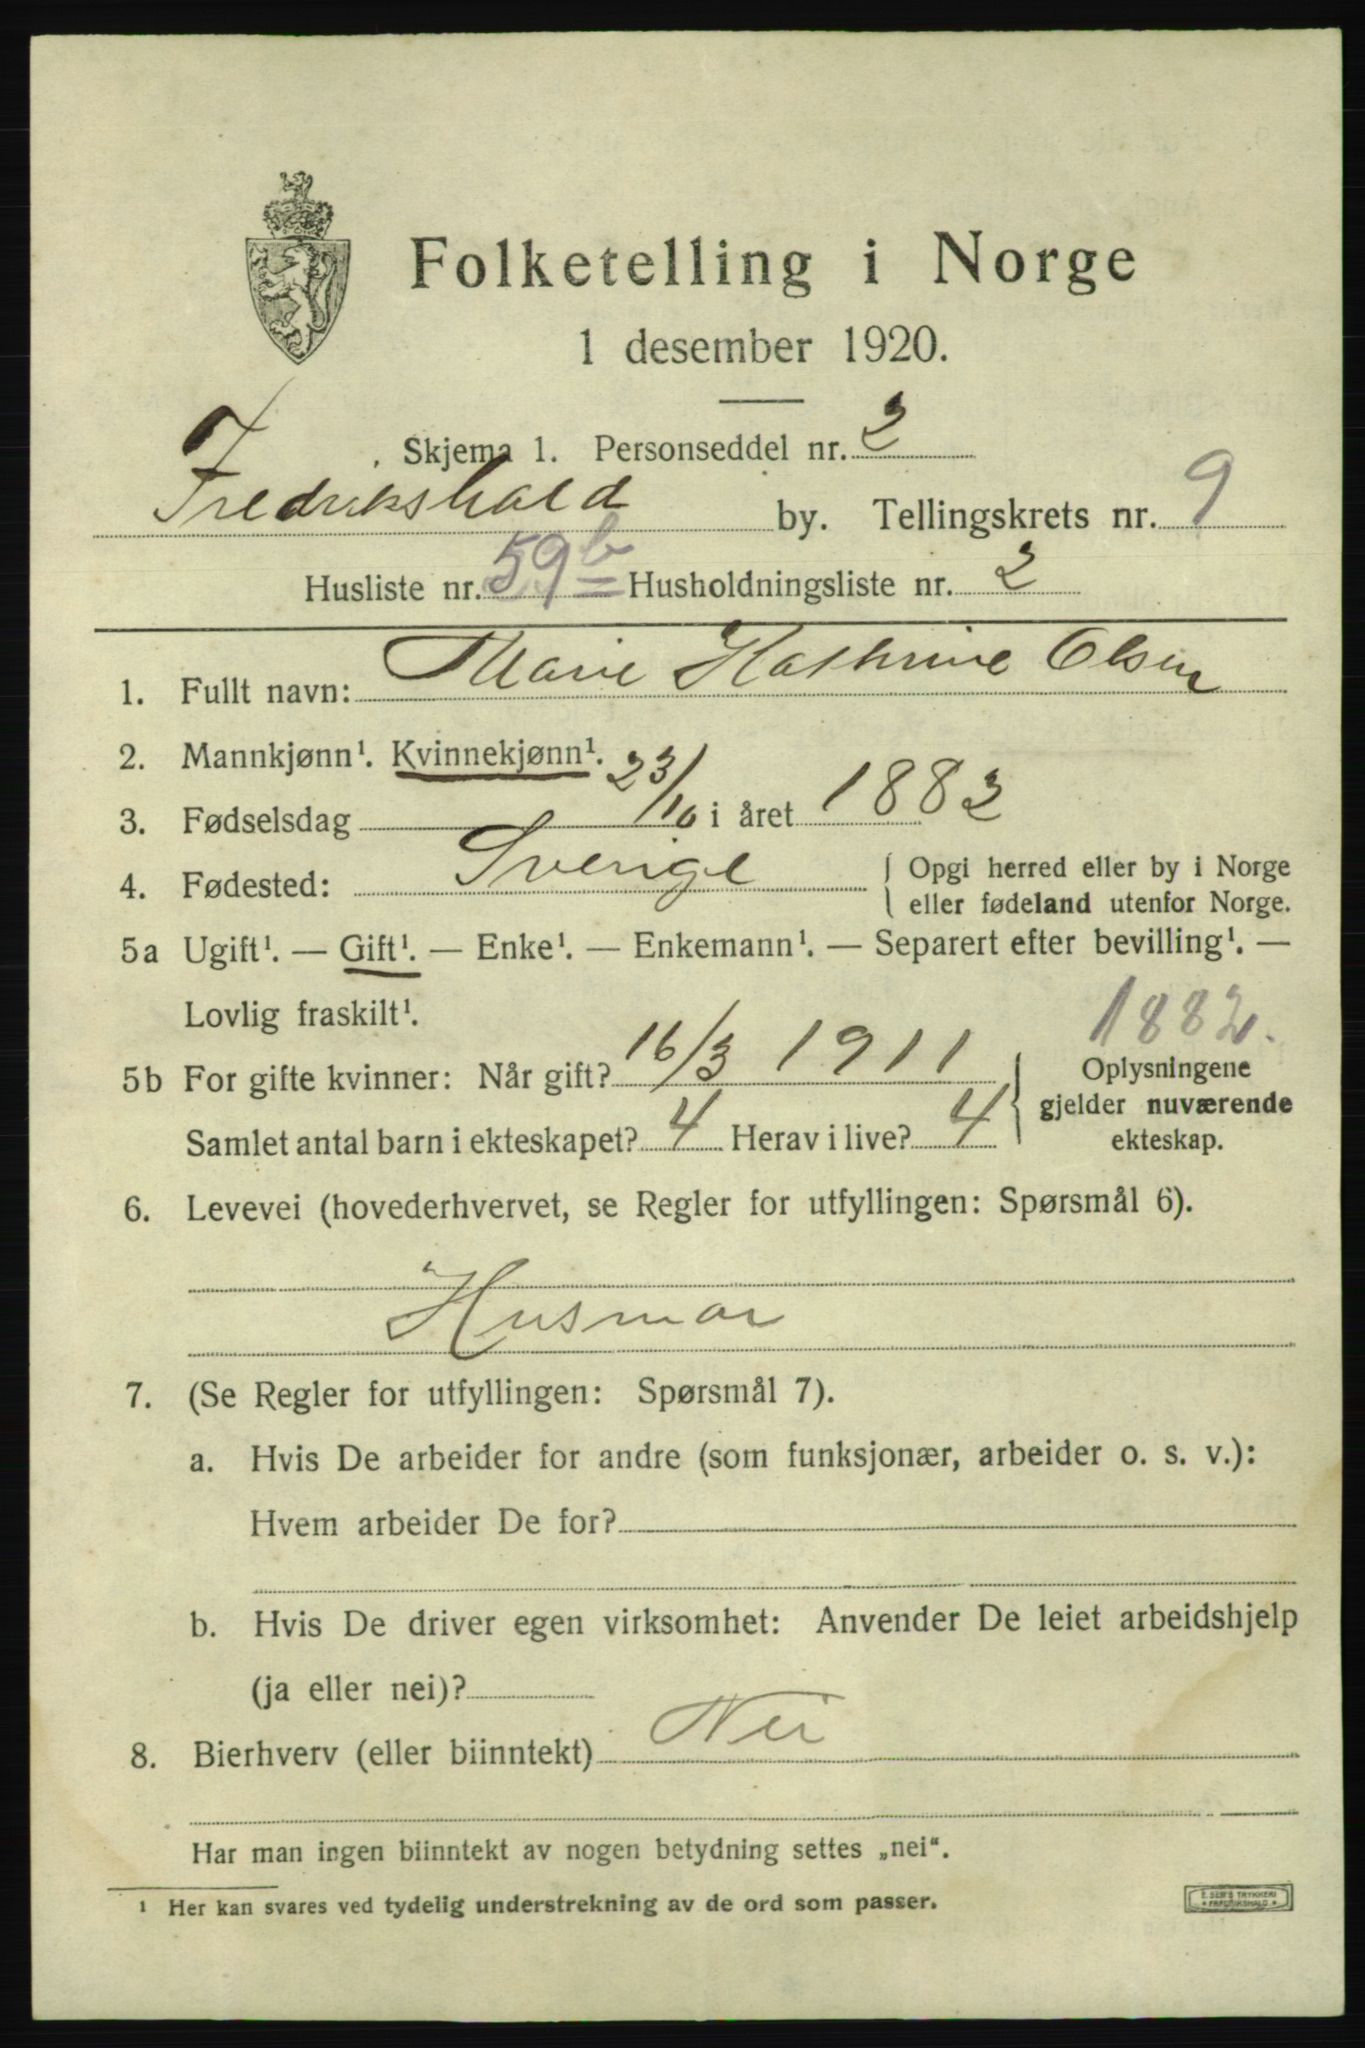 Folketelling i Norge
1 desember 1920.
Skjema 1. Personseddel nr. 2
Fredrikshald by. Tellingskrets nr. 9
Husliste nr. 59b Husholdningsliste nr. 2
1. Fullt navn: Marie Kathrine Olsen
2. Mannkjønn¹. Kvinnekjønn¹.
3. Fødselsdag 23/10 i året 1882
4. Fødested: Sverige { Opgi herred eller by i Norge
eller fødeland utenfor Norge.
5a Ugift¹. — Gift¹. — Enke¹. — Enkemann¹. — Separert efter bevilling¹. —
Lovlig fraskilt¹.
1882.
5b For gifte kvinner: Når gift? 16/3 1911 { Oplysningene
gjelder nuværende
Samlet antal barn i ekteskapet? 4 Herav i live? 4 ekteskap.
6. Levevei (hovederhvervet, se Regler for utfyllingen: Spørsmål 6).
Husmor
7. (Se Regler for utfyllingen: Spørsmål 7).
a. Hvis De arbeider for andre (som funksjonær, arbeider o. s. v.):
Hvem arbeider De for?
b. Hvis De driver egen virksomhet: Anvender De leiet arbeidshjelp
(ja eller nei)?
8. Bierhverv (eller biinntekt) Nei
Har man ingen biinntekt av nogen betydning settes „nei“.
¹ Her kan svares ved tydelig understrekning av de ord som passer.
E. SEM'S TRYKKERI
FREDRIKSHALD